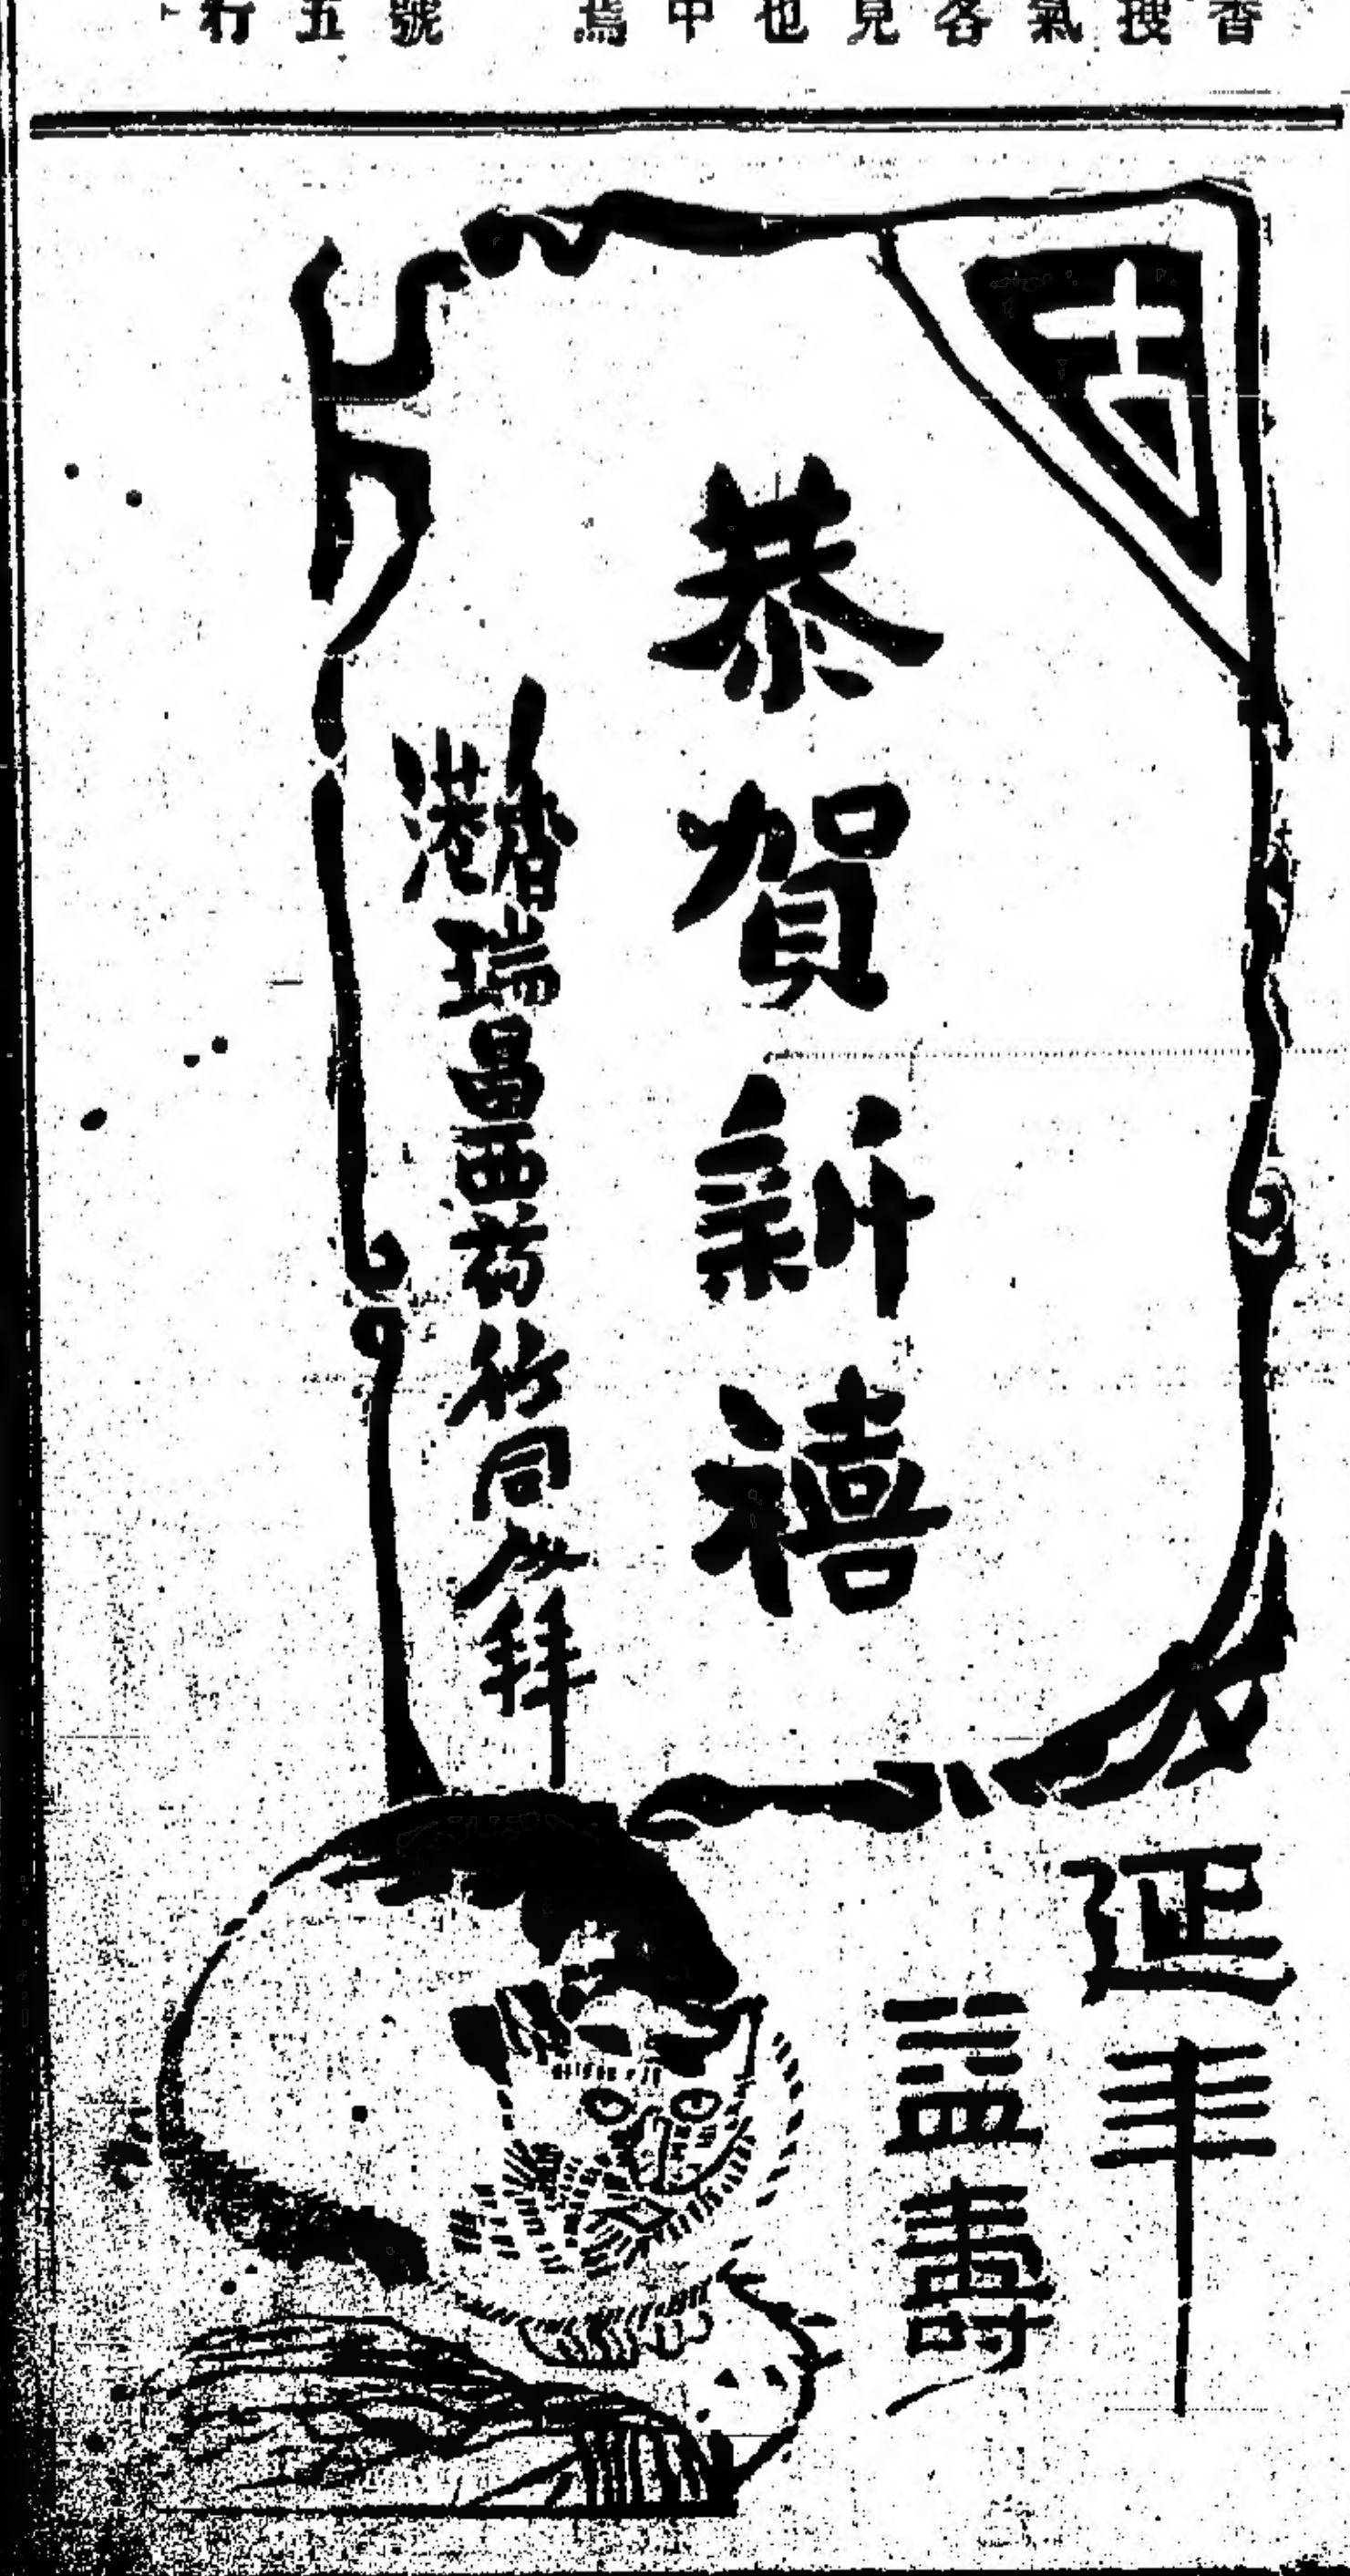 香搜氣各見也中焉 號五行
恭賀新禧
香港瑞昌西药行同人拜
延年
益壽